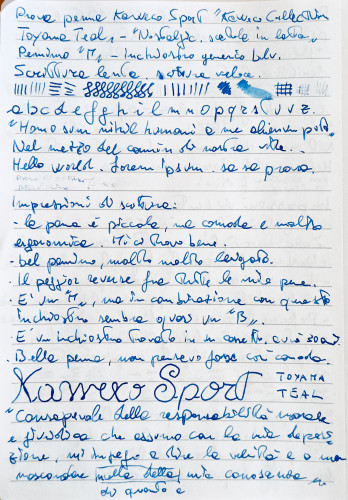 Prova penna Kaweco Sport "Kaweco Collection
Toyama Teal" - "Nostalgic. scatola in latta"
Pennino "M" - inchiostro generico blu.
Scrittura lenta. scrittura veloce.
a b c d e f g h i l m n o p q r s t u v z.
"Homo sum nihil humani a me alienum puto"
Nel mezzo del cammin di nostra vita..
Hello world. Lorem ipsum. sa sa prova.
Impressioni di scrittura:
- la penna è piccola, ma comoda e molto
ergonomica. Mi ci trovo bene.
- bel pennino, molto molto levigato.
- Il peggior reverse fra tutte le mie penne.
- E' un "M", ma in combinazione con questo
inchiostro sembra quasi un "B".
- E' un inchiostro trovato in un cassetto. circa 30 anni.
- Bella penna, non pensavo fosse così comoda.
Kaweco Sport TOYAMA
TEAL
"Consapevole della responsabilità morale
e giuridica che assumo con la mia deposi-
zione, mi impegno a dire la verità e a non
nascondere nulla della mia conoscenza"
di quanto è